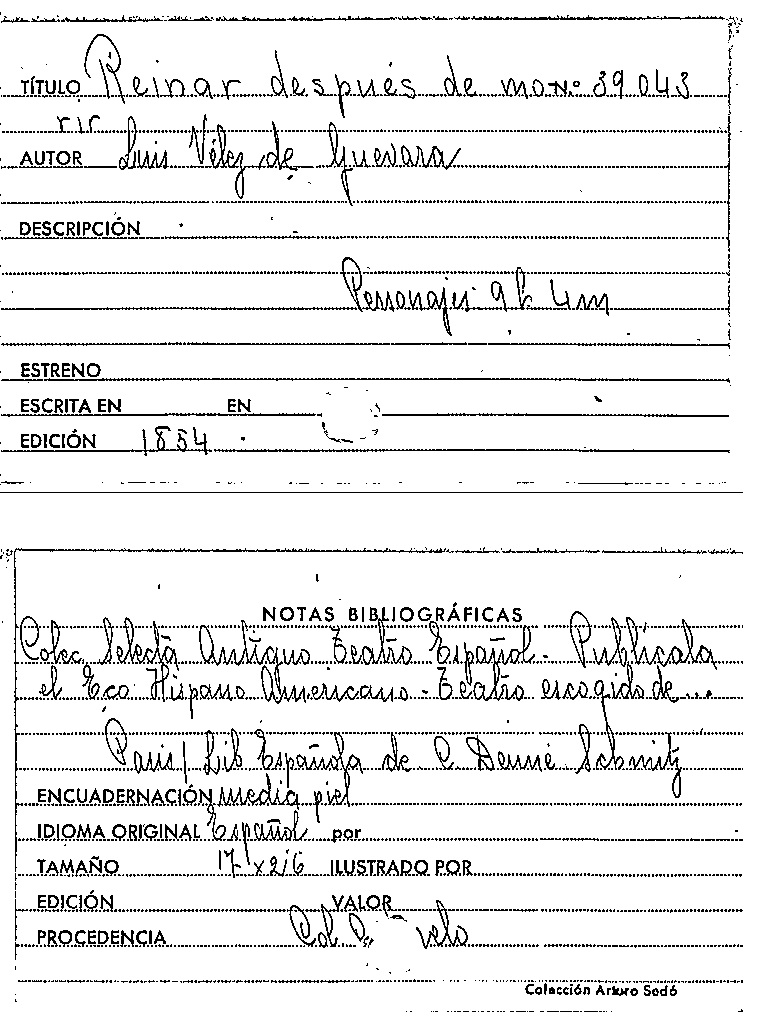 TÍTULO Reinar después de mo Nº 39043
rir
AUTOR Luis Vélez de Guevara
DESCRIPCIÓN
Personajes 9 h 4 m
ESTRENO
ESCRITA EN EN
EDICIÓN 1854
NOTAS BIBLIOGRÁFICAS
Colec Selecta Antiguo Teatro Español - Publícala
el Eco Hispano Americano - Teatro escogido de...
Paris / Lib Española de C. Denné Schmitz
ENCUADERNACIÓN media piel
IDIOMA ORIGINAL Español por
TAMAÑO ILUSTRADO POR
EDICIÓN VALOR
PROCEDENCIA Col
Colección Arturo Sedó